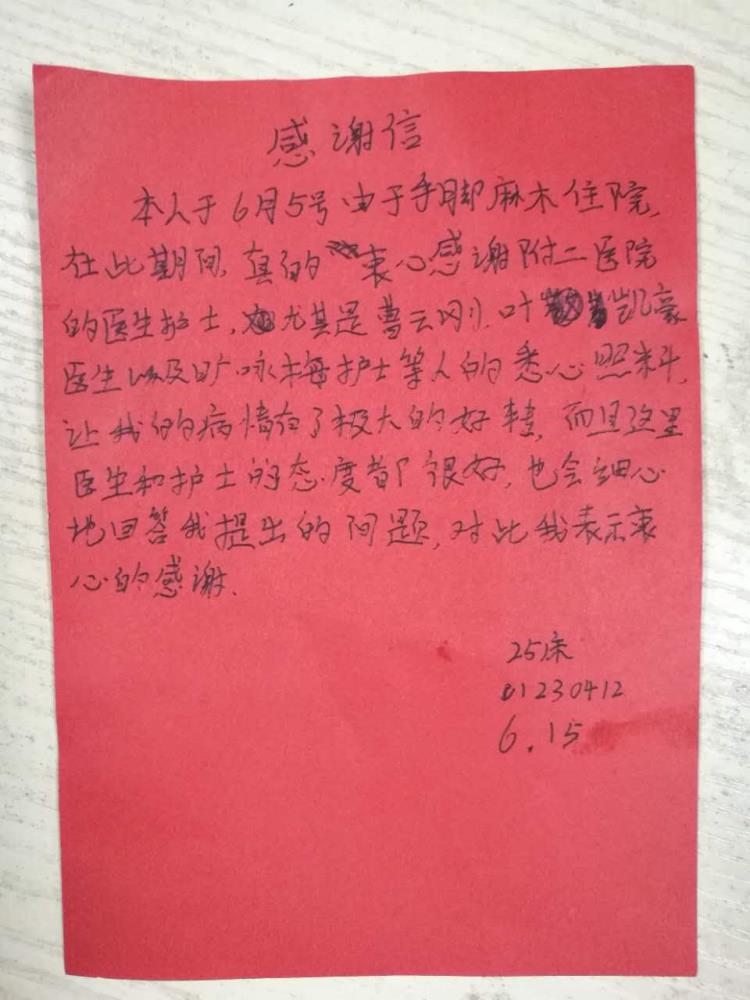 感谢信
本人于6月5号由于手脚麻木住院,
在此期间,真的衷心感谢附二医院
的医生护士,尤其是曹云刚、叶凯豪
医生以及旷咏梅护士等人的悉心照料,
让我的病情有了极大的好转,而且这里
医生和护士的态度都很好,也会细心
地回答我提出的问题,对此我表示衷
心的感谢.
25床
01230412
6.15